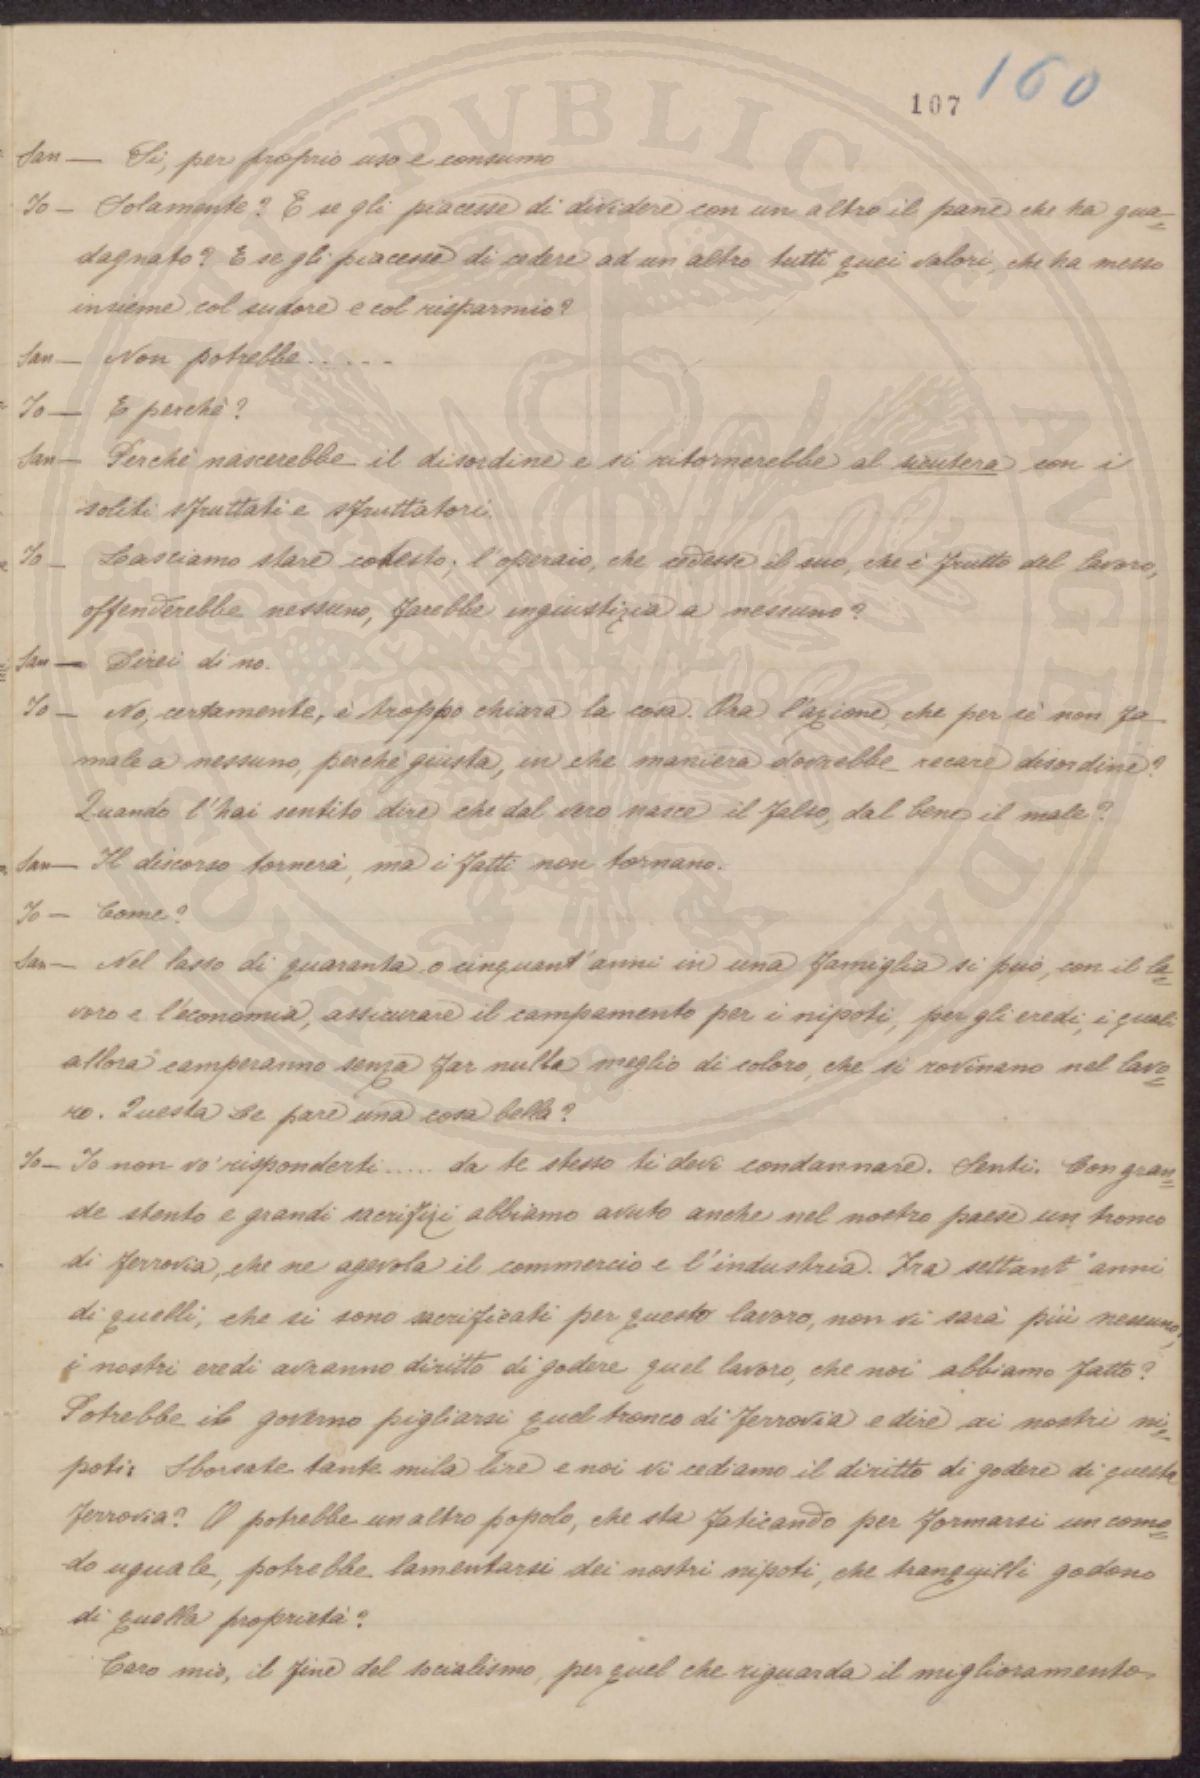 107 160
San — Si, per proprio uso e consumo
Io — Solamente? E se gli piacesse di dividere con un altro il pane che ha gua=
dagnato? E se gli piacesse di cedere ad un altro tutti quei valori, che ha messo
insieme col sudore e col risparmio?
San — Non potrebbe.....
Io — E perchè?
San — Perchè nascerebbe il disordine e si ritornerebbe al sicutera con i
soliti sfruttati e sfruttatori.
Io — Lasciamo stare cotesto; l'operaio, che cedesse il suo, che è frutto del lavoro,
offenderebbe nessuno, farebbe ingiustizia a nessuno?
San — Direi di no.
Io — No, certamente, è troppo chiara la cosa. Ora l'azione, che per sè non fa
male a nessuno, perchè giusta, in che maniera dovrebbe recare disordine?
Quando l'hai sentito dire che dal vero nasce il falso, dal bene il male?
San — Il discorso tornerà, ma i fatti non tornano.
Io — Come?
San — Nel lasso di quaranta o cinquant'anni in una famiglia si può, con il la=
voro e l'economia, assicurare il campamento per i nipoti, per gli eredi, i quali
allora camperanno senza far nulla meglio di coloro, che si rovinano nel lavo=
ro. Questa Le pare una cosa bella?
Io — Io non vo' risponderti..... da te stesso ti devi condannare. Senti. Con gran=
de stento e grandi sacrifizi abbiamo avuto anche nel nostro paese un tronco
di ferrovia, che ne agevola il commercio e l'industria. Fra settant'anni
di quelli, che si sono sacrificati per questo lavoro, non vi sarà più nessuno,
i nostri eredi avranno diritto di godere quel lavoro, che noi abbiamo fatto?
Potrebbe il governo pigliarsi quel tronco di ferrovia e dire ai nostri ni=
poti: Sborsate tante mila lire e noi vi cediamo il diritto di godere di questa
ferrovia? O potrebbe un altro popolo, che sta faticando per formarsi un como=
do uguale, potrebbe lamentarsi dei nostri nipoti, che tranquilli godono
di quella proprietà?
Caro mio, il fine del socialismo, per quel che riguarda il miglioramento